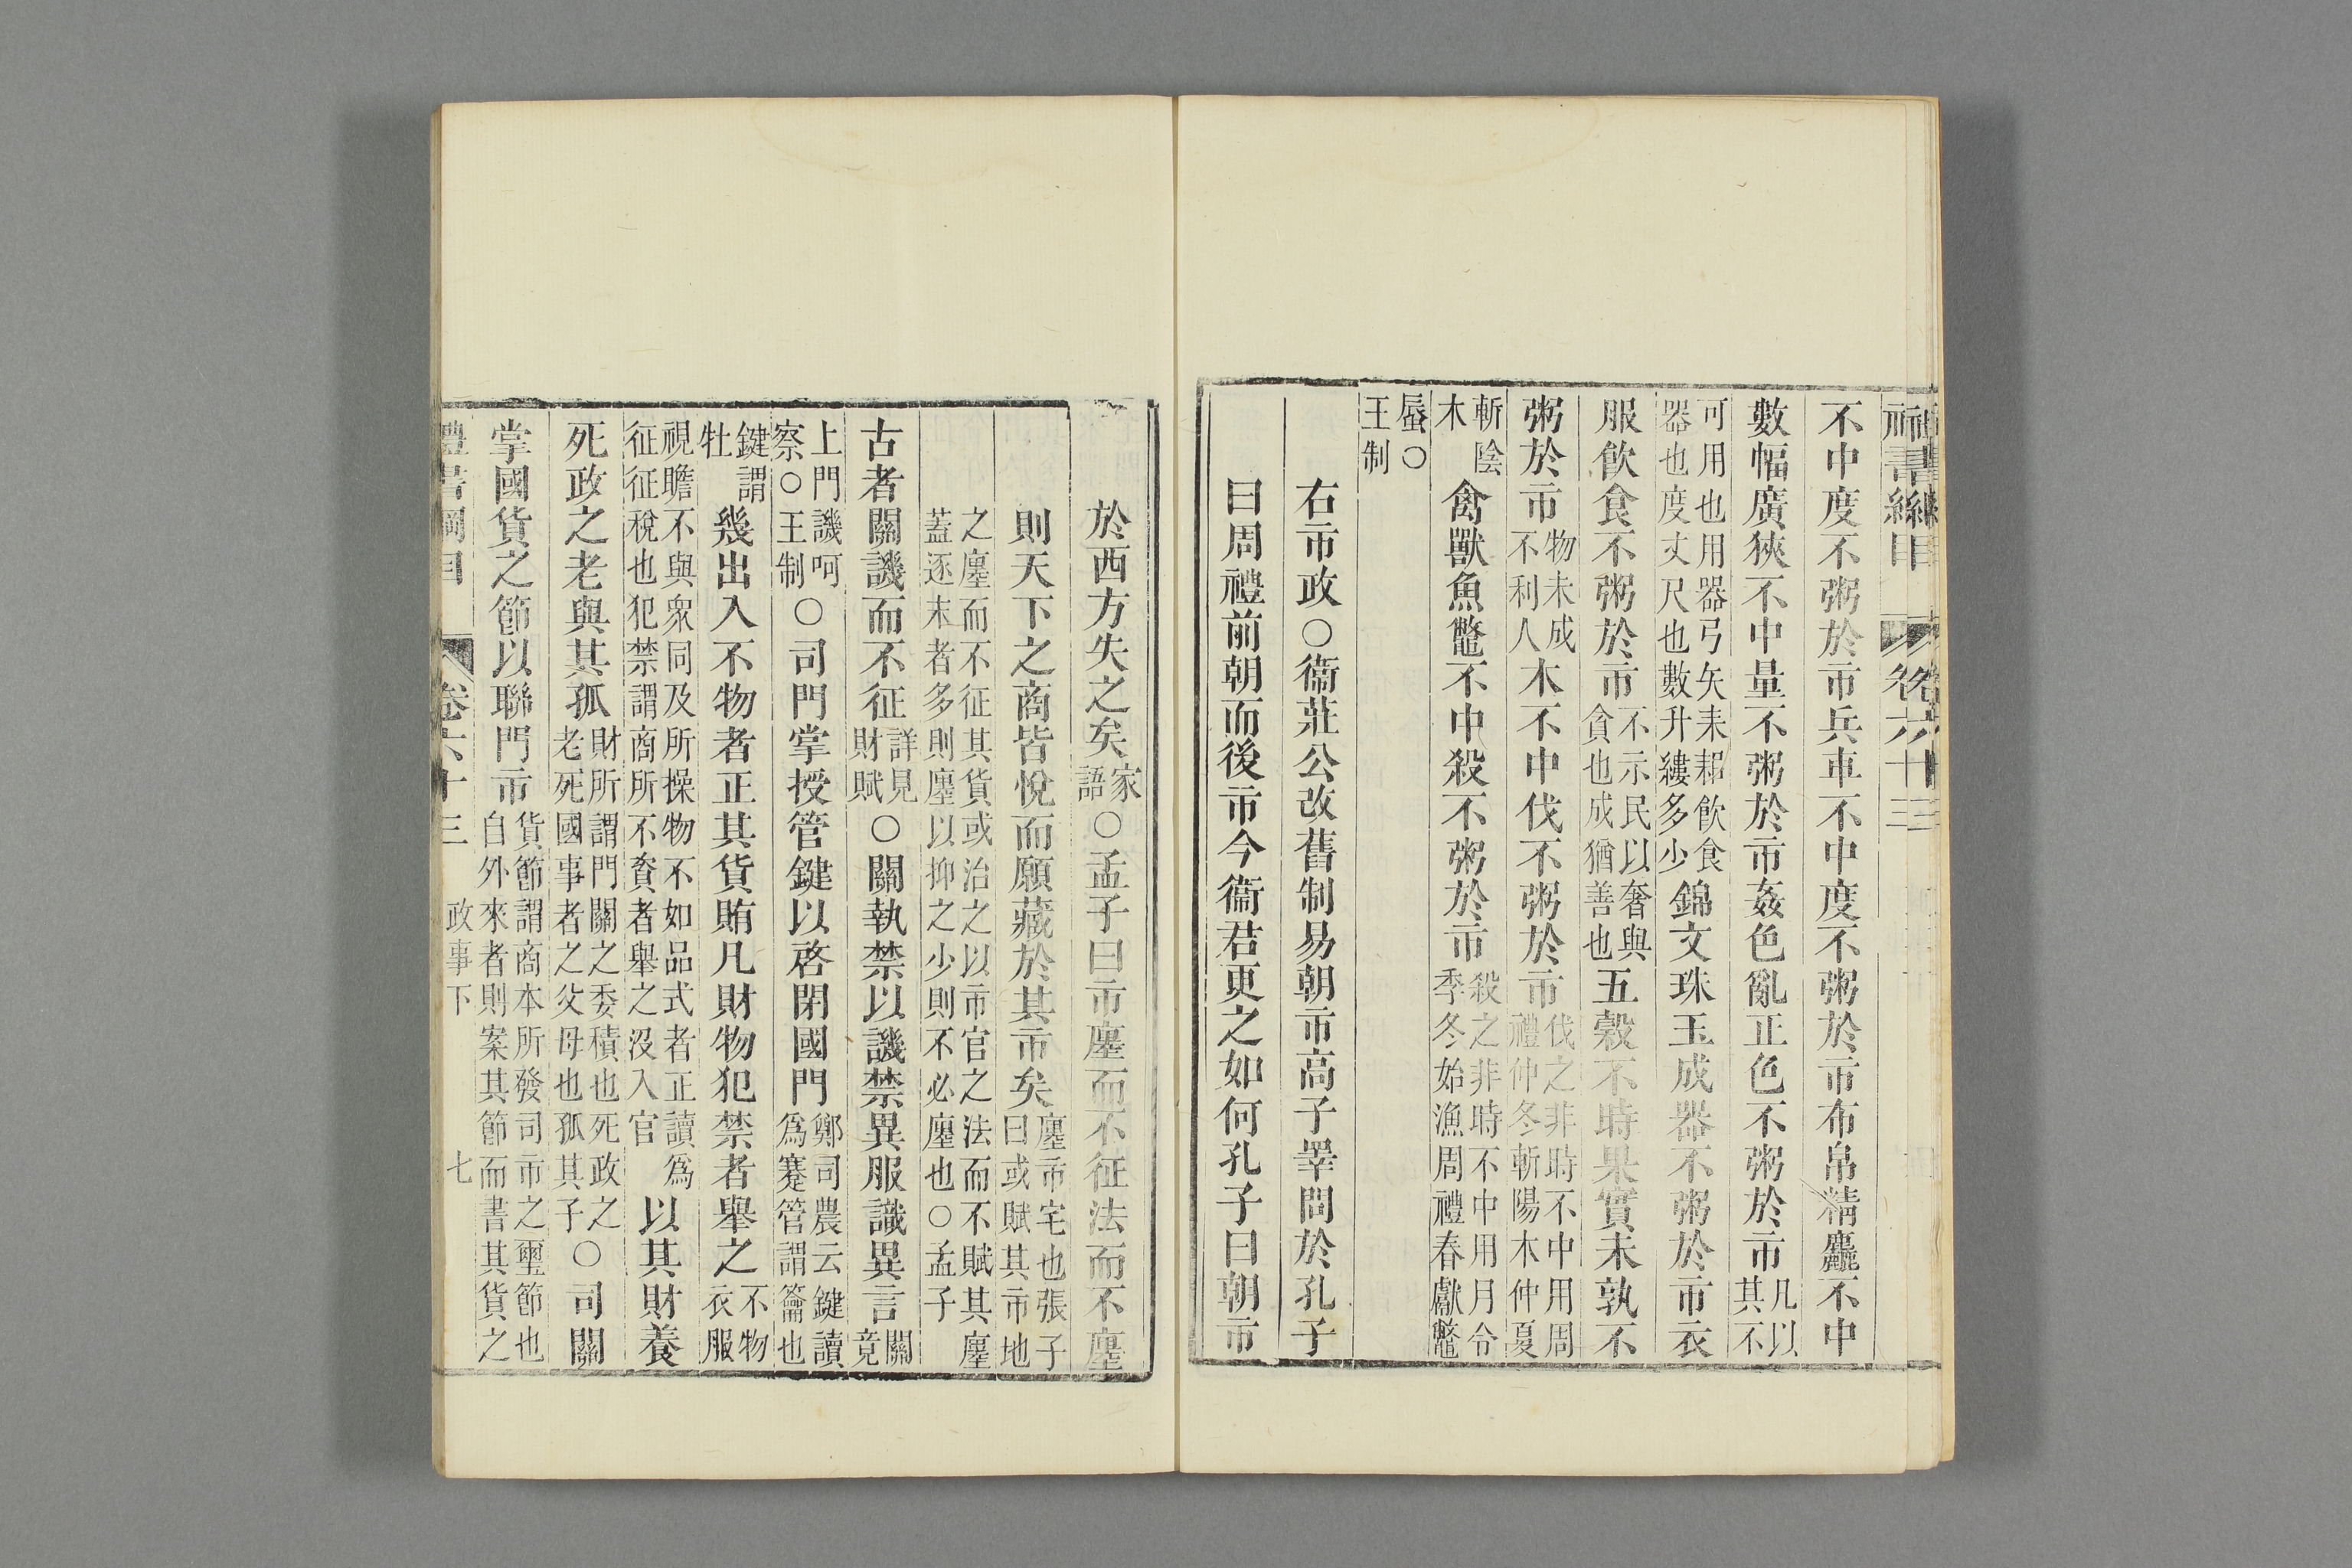 禮書綱目 卷六十三
不中度不粥於市兵車不中度不粥於市布帛精麤不中
數幅廣狹不中量不粥於市姦色亂正色不粥於市凡以其不
可用也用器弓矢耒耜飲食器也度丈尺也數升縷多少錦文珠玉成器不粥於市衣
服飲食不粥於市不示民以奢與貪也成猶善也五穀不時果實未孰不
粥於市物未成不利人木不中伐不粥於市伐之非時不中用周禮仲冬斬陽木仲夏
斬陰木禽獸魚鼈不中殺不粥於市殺之非時不中用月令季冬始漁周禮春獻鼈
蜃○王制
右市政○衞莊公改舊制易朝市高子睪問於孔子
曰周禮前朝而後市今衞君更之如何孔子曰朝市
於西方失之矣家語○孟子曰市廛而不征法而不廛
則天下之商皆悅而願藏於其市矣廛市宅也張子曰或賦其市地
之廛而不征其貨或治之以市官之法而不賦其廛蓋逐末者多則廛以抑之少則不必廛也○孟子
古者關譏而不征詳見財賦○關執禁以譏禁異服識異言關竟
上門譏呵察○王制○司門掌授管鍵以啓閉國門鄭司農云鍵讀爲蹇管謂籥也
鍵謂牡幾出入不物者正其貨賄凡財物犯禁者舉之不物衣服
視瞻不與衆同及所操物不如品式者正讀爲征征稅也犯禁謂商所不資者舉之沒入官以其財養
死政之老與其孤財所謂門關之委積也死政之老死國事者之父母也孤其子○司關
掌國貨之節以聯門市貨節謂商本所發司市之璽節也自外來者則案其節而書其貨之
禮書綱目 卷六十三 政事下 七